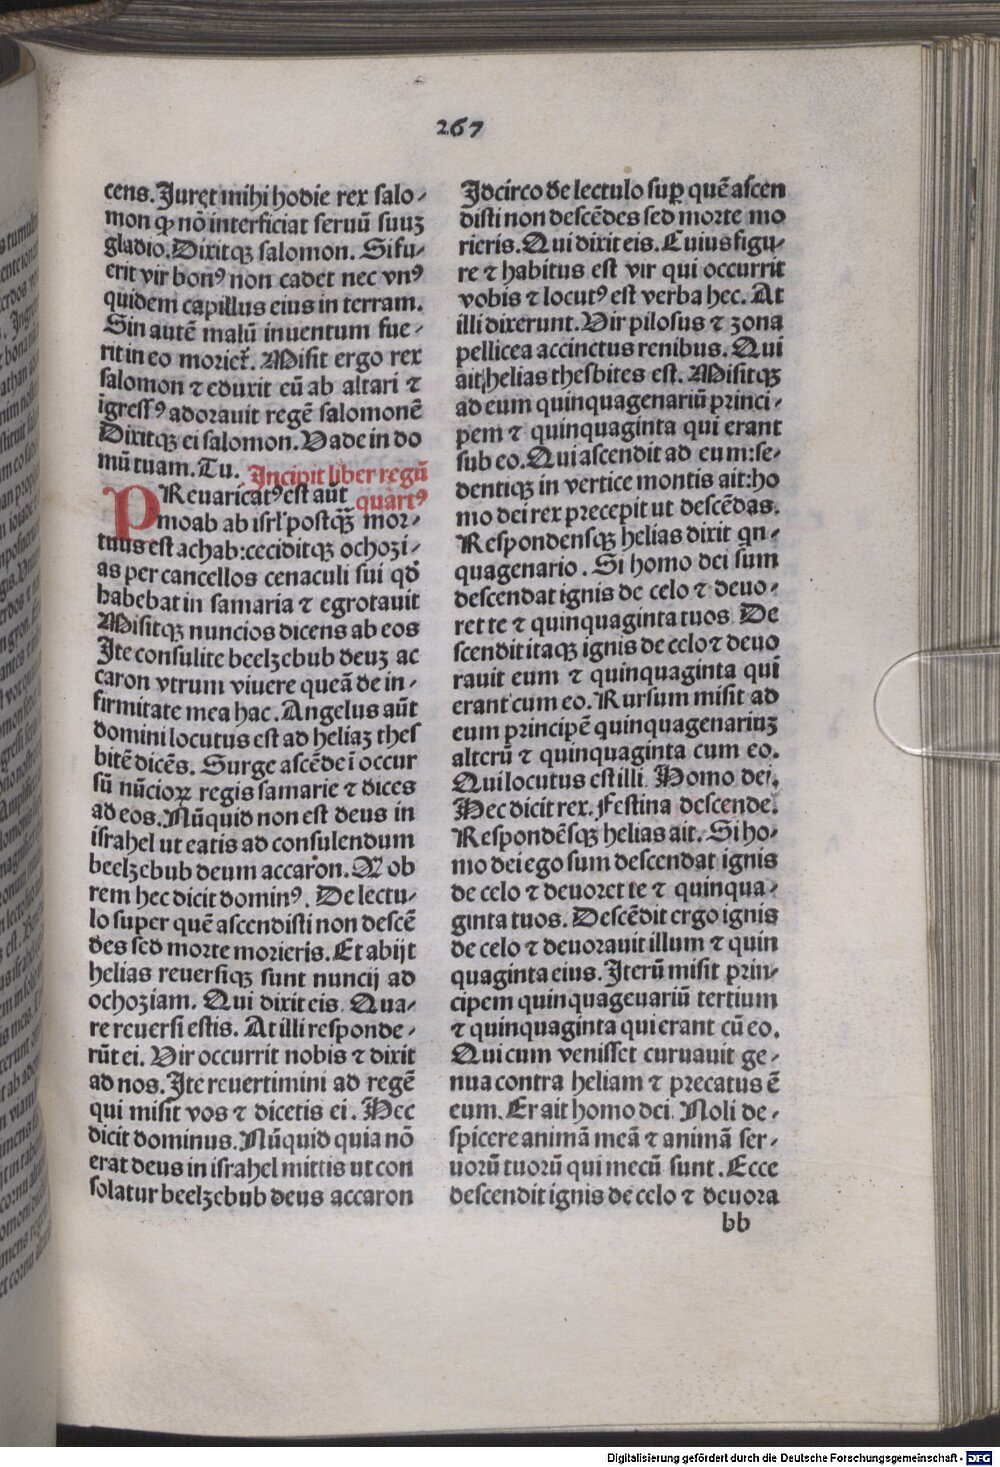 267
cens. Juret mihi hodie rex salo⸗
mon ꝙ nō interficiat seruū suuꝫ
gladio. Dixitqꝫ salomon. Si fu⸗
erit vir bonꝰ non cadet nec vnꝰ
quidem capillus eius in terram.
Sin autē malū inuentum fue⸗
rit in eo morieť. Misit ergo rex
salomon ⁊ eduxit eū ab altari ⁊
īgressꝰ adorauit regē salomonē
Dixitqꝫ ei salomon. Vade in do
mū tuam. Tu. Incipit liber regū
PReuaricatꝰ est aūt quartꝰ
moab ab isrl' postqꝫ̄ mor⸗
tuus est achab: ceciditqꝫ ochozi⸗
as per cancellos cenaculi sui qđ
habebat in samaria ⁊ egrotauit
Misitqꝫ nuncios dicens ab eos
Ite consulite beelzebub deuꝫ ac
caron vtrum viuere queā de in⸗
firmitate mea hac. Angelus aūt
domini locutus est ad heliaꝫ thes
bitē dicēs. Surge ascēde ī occur
sū nūcioꝝ regis samarie ⁊ dices
ad eos. Nūquid non est deus in
israhel ut eatis ad consulendum
beelzebub deum accaron. Q ob
rem hec dicit dominꝰ. De lectu⸗
lo super quē ascendisti non descē
des sed morte morieris. Et abijt
helias reuersiqꝫ sunt nuncij ad
ochoziam. Qui dixit eis. Qua⸗
re reuersi estis. At illi responde⸗
rūt ei. Vir occurrit nobis ⁊ dixit
ad nos. Ite reuertimini ad regē
qui misit vos ⁊ dicetis ei. Hec
dicit dominus. Nūquid quia nō
erat deus in israhel mittis ut con
solatur beelzebub deus accaron
Idcirco de lectulo suꝑ quē ascen
disti non descēdes sed morte mo
rieris. Qui dixit eis. Cuius figu⸗
re ⁊ habitus est vir qui occurrit
vobis ⁊ locutꝰ est verba hec. At
illi dixerunt. Vir pilosus ⁊ zona
pellicea accinctus renibus. Qui
ait helias thesbites est. Misitqꝫ
ad eum quinquagenariū princi⸗
pem ⁊ quinquaginta qui erant
sub eo. Qui ascendit ad eum: se⸗
dentiqꝫ in vertice montis ait: ho
mo dei rex precepit ut descēdas.
Respondensqꝫ helias dixit qn⸗
quagenario. Si homo dei sum
descendat ignis de celo ⁊ deuo⸗
ret te ⁊ quinquaginta tuos. De
scendit itaqꝫ ignis de celo ⁊ deuo
rauit eum ⁊ quinquaginta qui
erant cum eo. Rursum misit ad
eum principē quinquagenariuꝫ
alterū ⁊ quinquaginta cum eo.
Qui locutus est illi. Homo dei.
Hec dicit rex. Festina descende.
Respondēsqꝫ helias ait. Si ho⸗
mo dei ego sum descendat ignis
de celo ⁊ deuoret te ⁊ quinqua⸗
ginta tuos. Descēdit ergo ignis
de celo ⁊ deuorauit illum ⁊ quin
quaginta eius. Iterū misit prin⸗
cipem quinquageuariū tertium
⁊ quinquaginta qui erant cū eo.
Qui cum venisset curuauit ge⸗
nua contra heliam ⁊ precatus ē
eum. Er ait homo dei. Noli de⸗
spicere animā meā ⁊ animā ser⸗
uorū tuorū qui mecū sunt. Ecce
descendit ignis de celo ⁊ deuora
bb
Digitalisierung gefördert durch die Deutsche Forschungsgemeinschaft - DFG